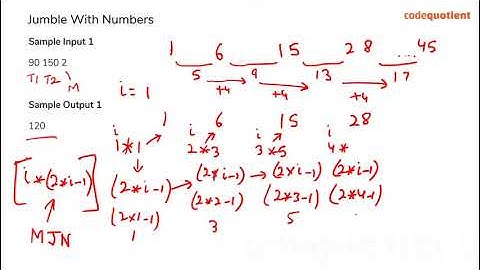 Jumble With Numbers
codequotient
Sample Input 1
90 150 2
T1 T2 M
Sample Output 1
120
1 6 15 28 ....45
5 9 13 17
+4 +4 +4
i = 1
1 6 15 28
i i i i
1*1 2*3 3*5 4*
[i*(2*i-1)]
(2*i-1) → (2*i-1) → (2*i-1) (2*i-1)
(2*1-1) (2*2-1) (2*3-1) (2*4-1)
1 3 5
MJN